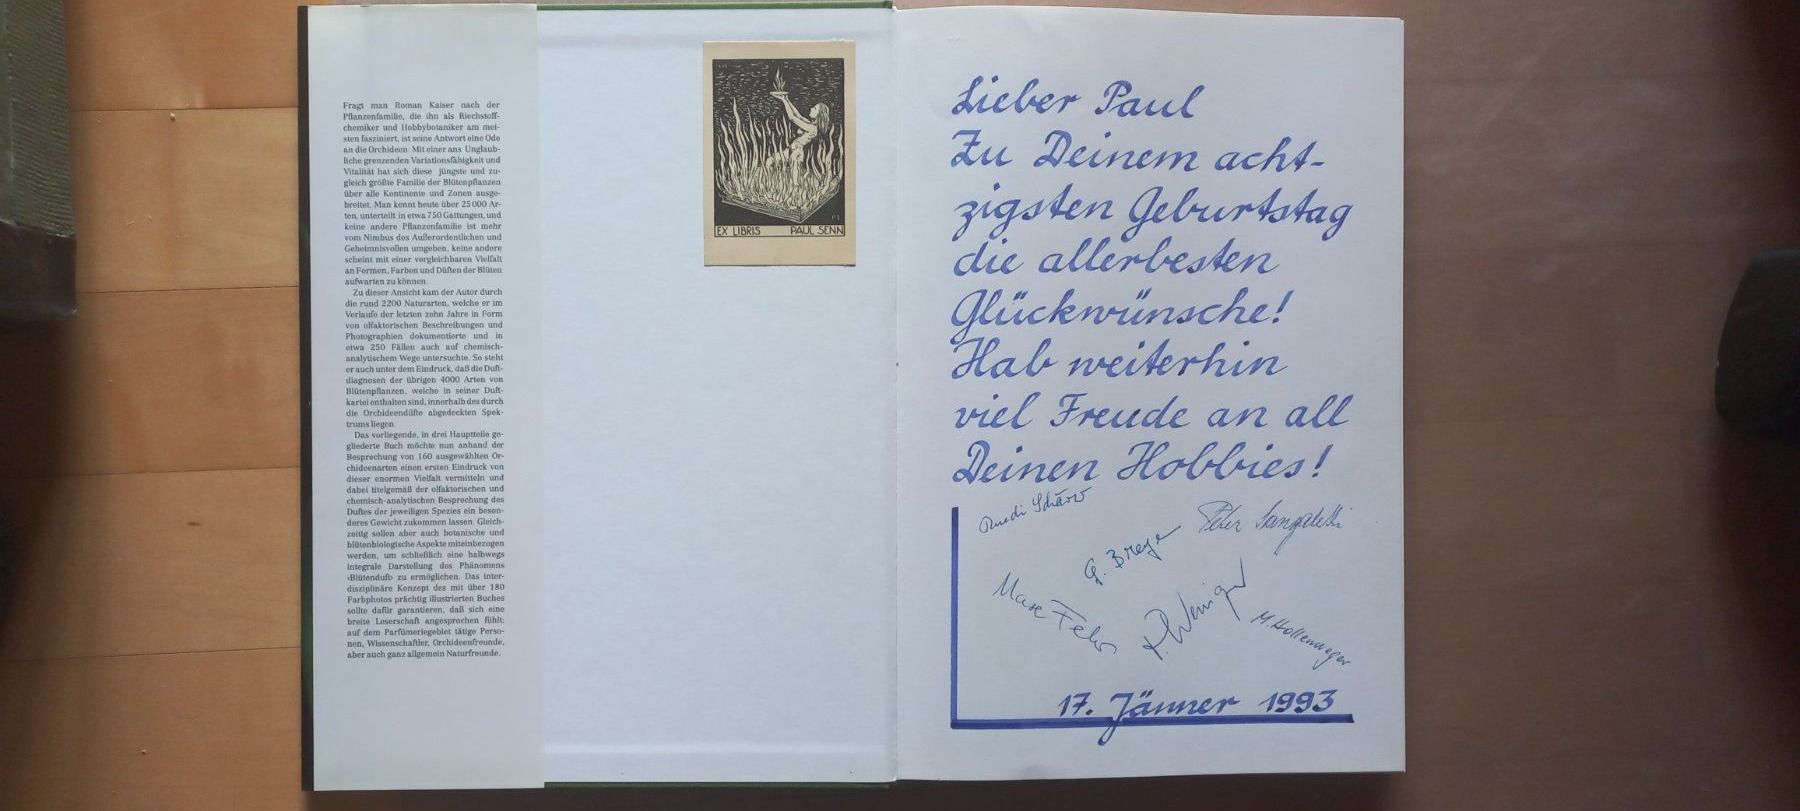 Fragt man Roman Kaiser nach der
Pflanzenfamilie, die ihn als Riechstoff-
chemiker und Hobbybotaniker am mei-
sten fasziniert, ist seine Antwort eine Ode
an die Orchideen: Mit einer ans Unglaub-
liche grenzenden Variationsfähigkeit und
Vitalität hat sich diese jüngste und zu-
gleich größte Familie der Blütenpflanzen
über alle Kontinente und Zonen ausge-
breitet. Man kennt heute über 25000 Ar-
ten, unterteilt in etwa 750 Gattungen, und
keine andere Pflanzenfamilie ist mehr
vom Nimbus des Außerordentlichen und
Geheimnisvollen umgeben, keine andere
scheint mit einer vergleichbaren Vielfalt
an Formen, Farben und Düften der Blüten
aufwarten zu können.
Zu dieser Ansicht kam der Autor durch
die rund 2200 Naturarten, welche er im
Verlaufe der letzten zehn Jahre in Form
von olfaktorischen Beschreibungen und
Photographien dokumentierte und in
etwa 250 Fällen auch auf chemisch-
analytischem Wege untersuchte. So steht
er auch unter dem Eindruck, daß die Duft-
diagnosen der übrigen 4000 Arten von
Blütenpflanzen, welche in seiner Duft-
kartei enthalten sind, innerhalb des durch
die Orchideendüfte abgedeckten Spek-
trums liegen.
Das vorliegende, in drei Hauptteile ge-
gliederte Buch möchte nun anhand der
Besprechung von 160 ausgewählten Or-
chideenarten einen ersten Eindruck von
dieser enormen Vielfalt vermitteln und
dabei titelgemäß der olfaktorischen und
chemisch-analytischen Besprechung des
Duftes der jeweiligen Spezies ein beson-
deres Gewicht zukommen lassen. Gleich-
zeitig sollen aber auch botanische und
blütenbiologische Aspekte miteinbezogen
werden, um schließlich eine halbwegs
integrale Darstellung des Phänomens
‹Blütenduft› zu ermöglichen. Das inter-
disziplinäre Konzept des mit über 180
Farbphotos prächtig illustrierten Buches
sollte dafür garantieren, daß sich eine
breite Leserschaft angesprochen fühlt:
auf dem Parfümeriegebiet tätige Perso-
nen, Wissenschaftler, Orchideenfreunde,
aber auch ganz allgemein Naturfreunde.
EX LIBRIS PAUL SENN
Lieber Paul
Zu Deinem acht-
zigsten Geburtstag
die allerbesten
Glückwünsche!
Hab weiterhin
viel Freude an all
Deinen Hobbies!
Ruedi Schärer
Peter
G. Breye
Max Fehr
M. Hollenweger
17. Jänner 1993